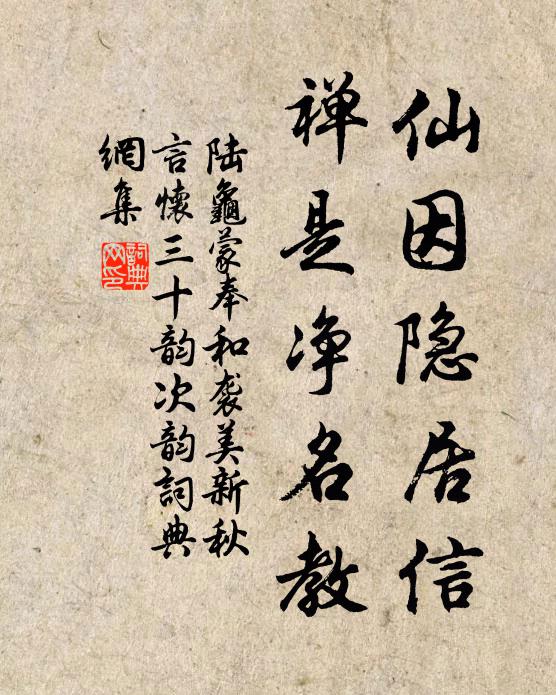 仙因隐居信
禅是净名教
陆龜蒙奉和袭美新秋
言懷三十韵次韵詞典
網集
詞典
网印